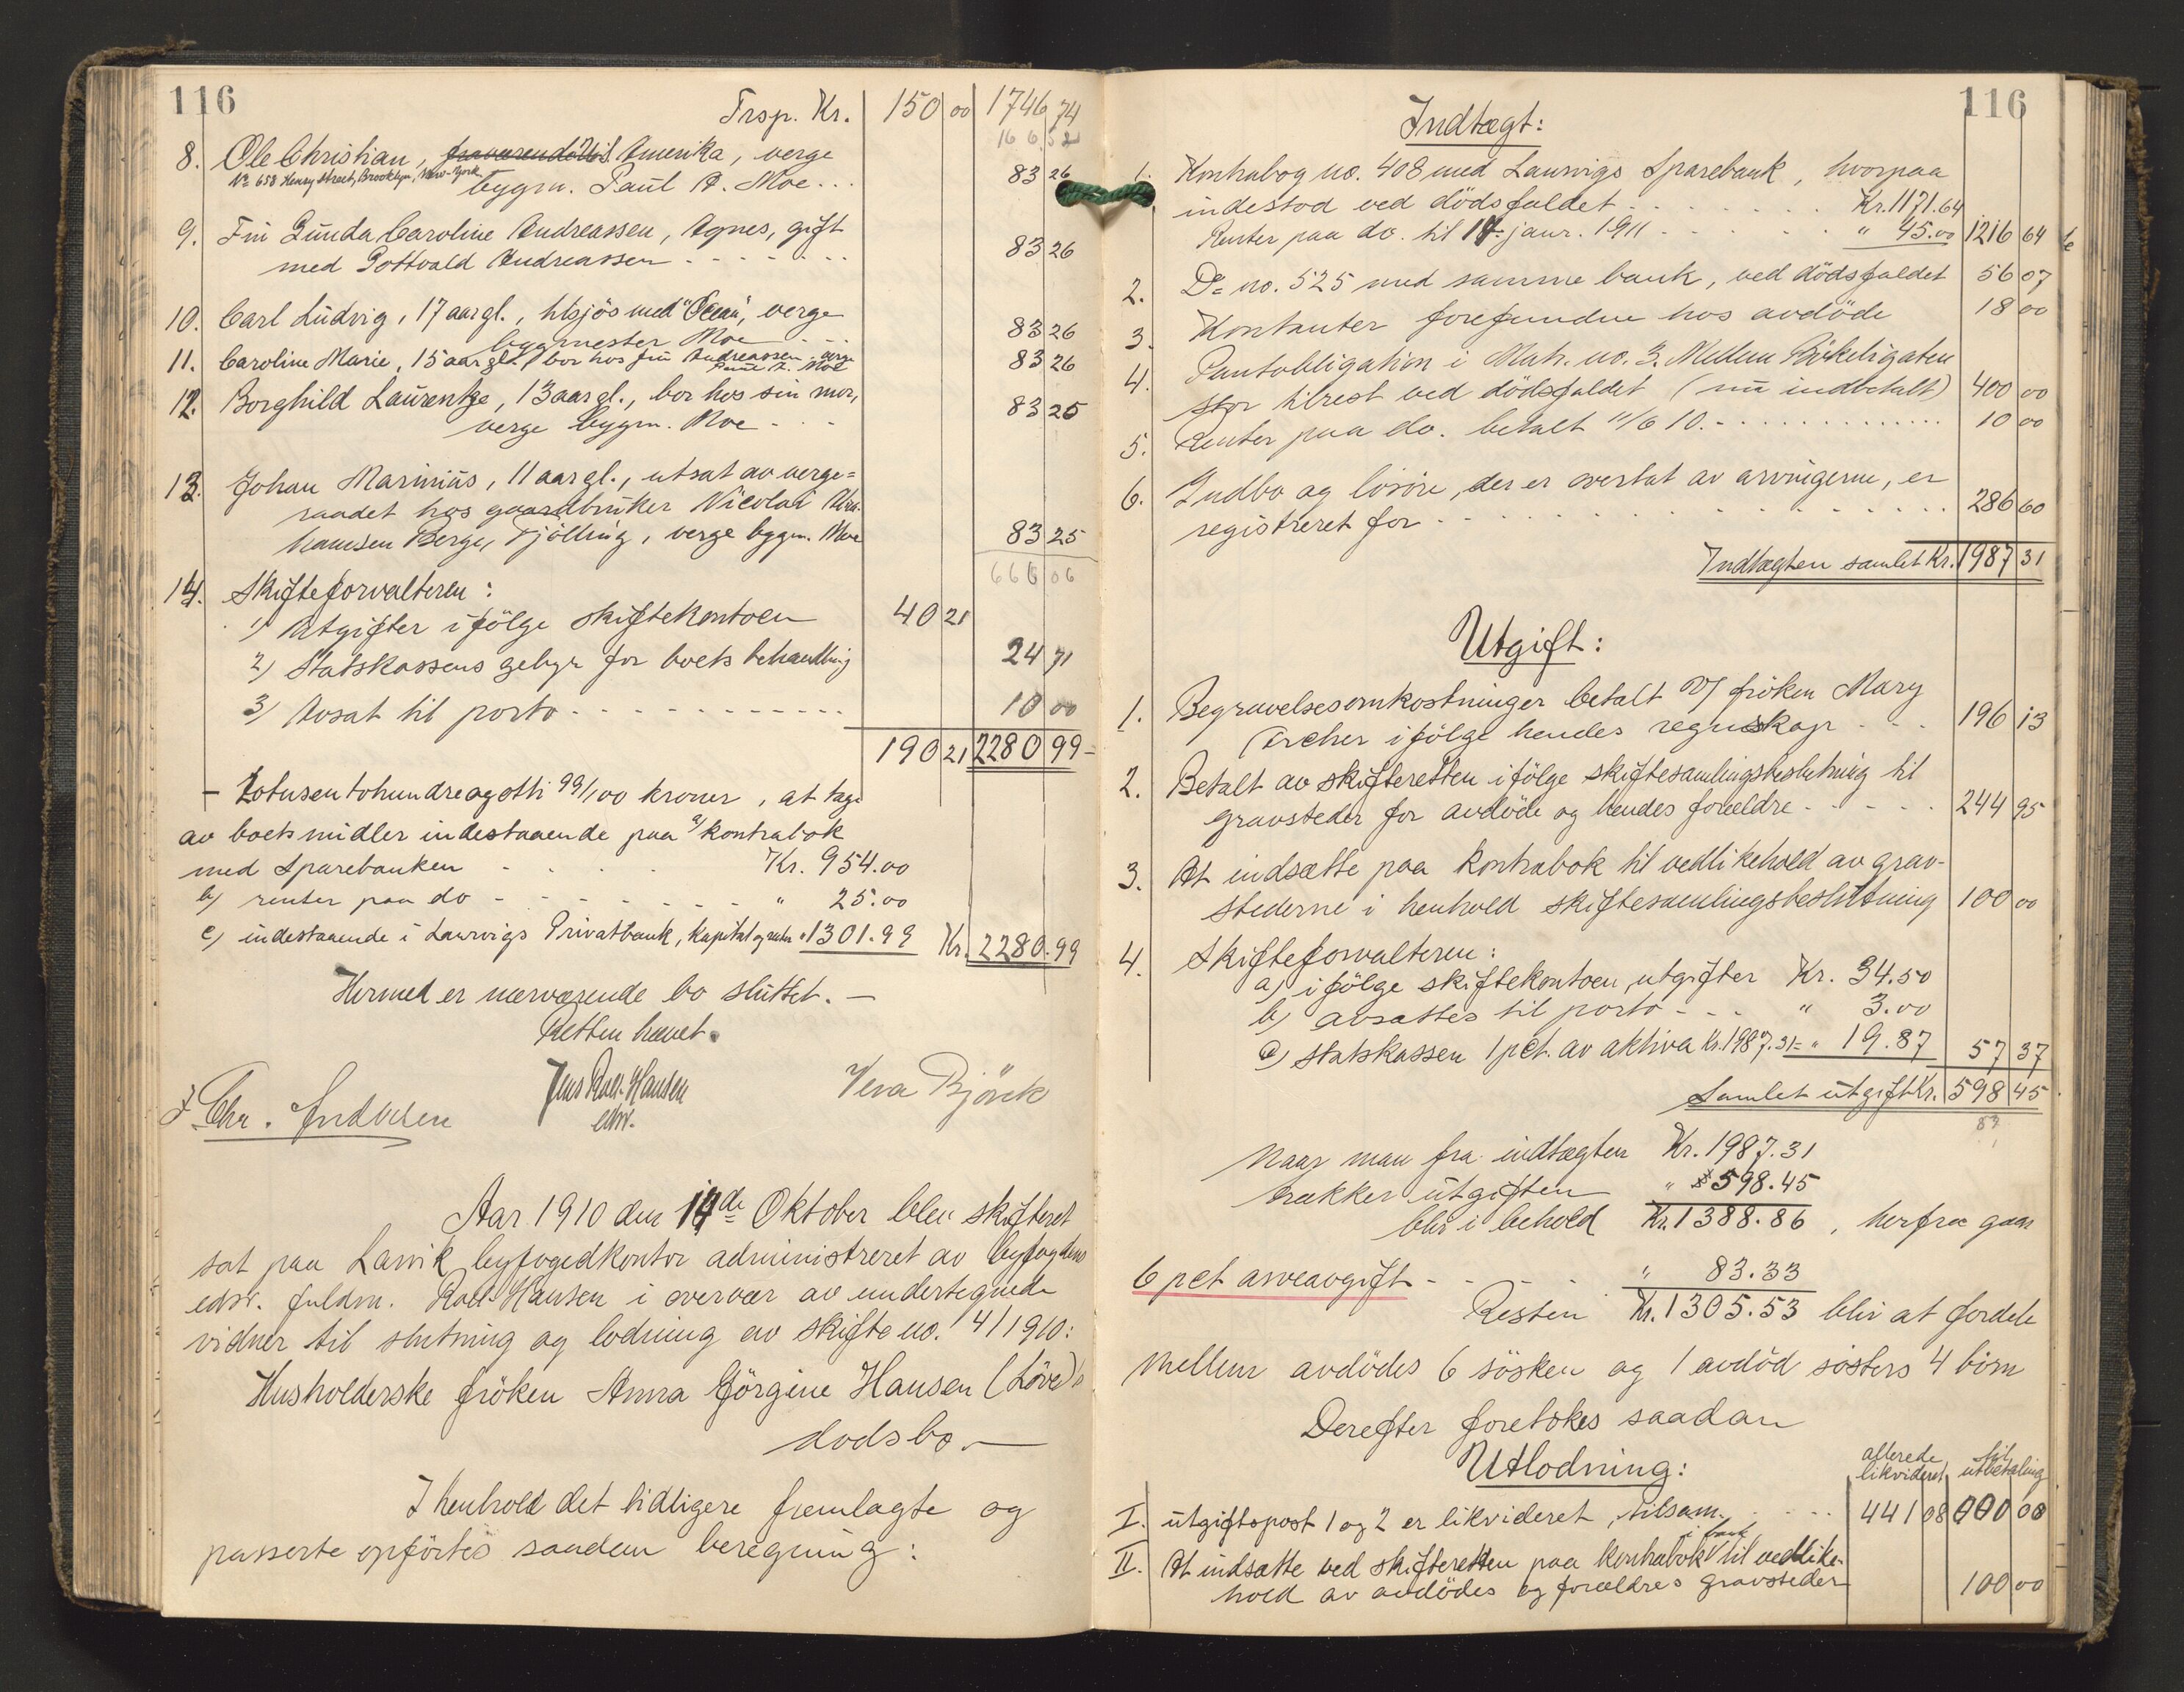 116
Trsp. Kr. 150 00 1746 74
166 52
8. Ole Christian, fraværende i Amerika, verge
No 658 Henry Street, Brooklyn, New-York
bygm. Paul A. Moe... 83 26
9. Fru Gunda Caroline Andreassen, Agnes, gift
med Gottvald Andreassen - - - - - - - 83 26
10. Carl Ludvig, 17 aar gl., tilsjøs med "Ocean", verge
bygmester Moe - - - 83 26
11. Caroline Marie, 15 aar gl., bor hos fru Andreassen, verge
Paul A. Moe 83 26
12. Borghild Laurentze, 13 aar gl., bor hos sin mor,
verge bygm. Moe - - - 83 25
13. Johan Marinius, 11 aar gl., utsat av verge=
raadet hos gaardbruker Nicolai Abra-
hamsen Berge, Tjølling, verge bygm. Moe 83 25
666 06
14. Skifteforvalteren:
1) Utgifter ifölge skiftekontoen 40 21
2) Statskassens gebyr for boets behandling 24 71
3) Avsat til porto - - - - - - - - - - - 10 00
190 21 2280 99 -
- Totusentohundreogotti 99/100 kroner, at tage
av boets midler indestaaende paa a/ kontrabok
med Sparebanken - - - - Kr. 954.00
b) renter paa do - - - - - - - " 25.00
c) indestaaende i Laurvigs Privatbank, kapital og renter " 1301.99 Kr. 2280.99
Hermed er nærværende bo sluttet. -
Retten hævet.
J. Chr. Andersen Jens Roll-Hansen Vera Björck
edsv.
Aar 1910 den 14de Oktober blev skifteret
sat paa Larvik byfogedkontor administreret av byfogdens
edsv. fuldm. Roll-Hansen i overvær av undertegnede
vidner til slutning og lodning av skifte no. 4/1910:
Husholderske fröken Anna Görgine Hansen (Löve)'s
dødsbo. -
I henhold det tidligere fremlagte og
passerte opførtes saadan beregning:
116
Indtægt:
1. Kontrabog no. 408 med Laurvigs Sparebank, hvorpaa
indestod ved dödsfaldet - - - - - - - Kr. 1171.64
Renter paa do. til 14 janr. 1911 - - - - - " 45.00 1216 64
2. Do no. 525 med samme bank, ved dödsfaldet 56 07
3. Kontanter forefundne hos avdöde 18 00
4. Pantobligation i Matr. no. 3. Mellem Bökeligaten
stor tilrest ved dödsfaldet (nu indbetalt) 400 00
5. Renter paa do. betalt 11/6 10. - - - - - - - - - 10 00
6. Indbo og lösöre, der er overtat av arvingerne, er
registreret for - - - - - - - - - - - 286 60
Indtægten samlet Kr. 1987 31
Utgift:
1. Begravelsesomkostninger betalt v/ fröken Mary
Archer ifölge hendes regnskap - - - 196 13
2. Betalt av skifteretten ifölge skiftesamlingsbeslutning til
gravsteder for avdöde og hendes forældre - - - - - 244 95
3. At indsætte paa kontrabok til vedlikehold av grav-
stederne i henhold skiftesamlingsbeslutning 100 00
4. Skifteforvalteren:
a) ifölge skiftekontoen, utgifter Kr. 34.50
b) avsættes til porto - - - " 3.00
c) statskassen 1 pct. av aktiva Kr. 1987.31 = " 19.87 57 37
Samlet utgift Kr. 598 45
83
Naar man fra indtægten Kr. 1987.31
trækker utgiften " 598.45
blir i behold Kr. 1388.86, herfra gaar
6 pct arveavgift - - - - " 83.33
Resten Kr. 1305.53 blir at fordele
mellem avdödes 6 sösken og 1 avdöd sösters 4 börn
Derefter foretokes saadan
Utlodning:
allerede likvideret til utbetaling
I. Utgiftspost 1 og 2 er likvideret, tilsam. - - - - 441 08 000 00
II. At indsætte ved skifteretten paa kontrabok i bank til vedlike-
hold av avdödes og forældres gravsteder 100 00